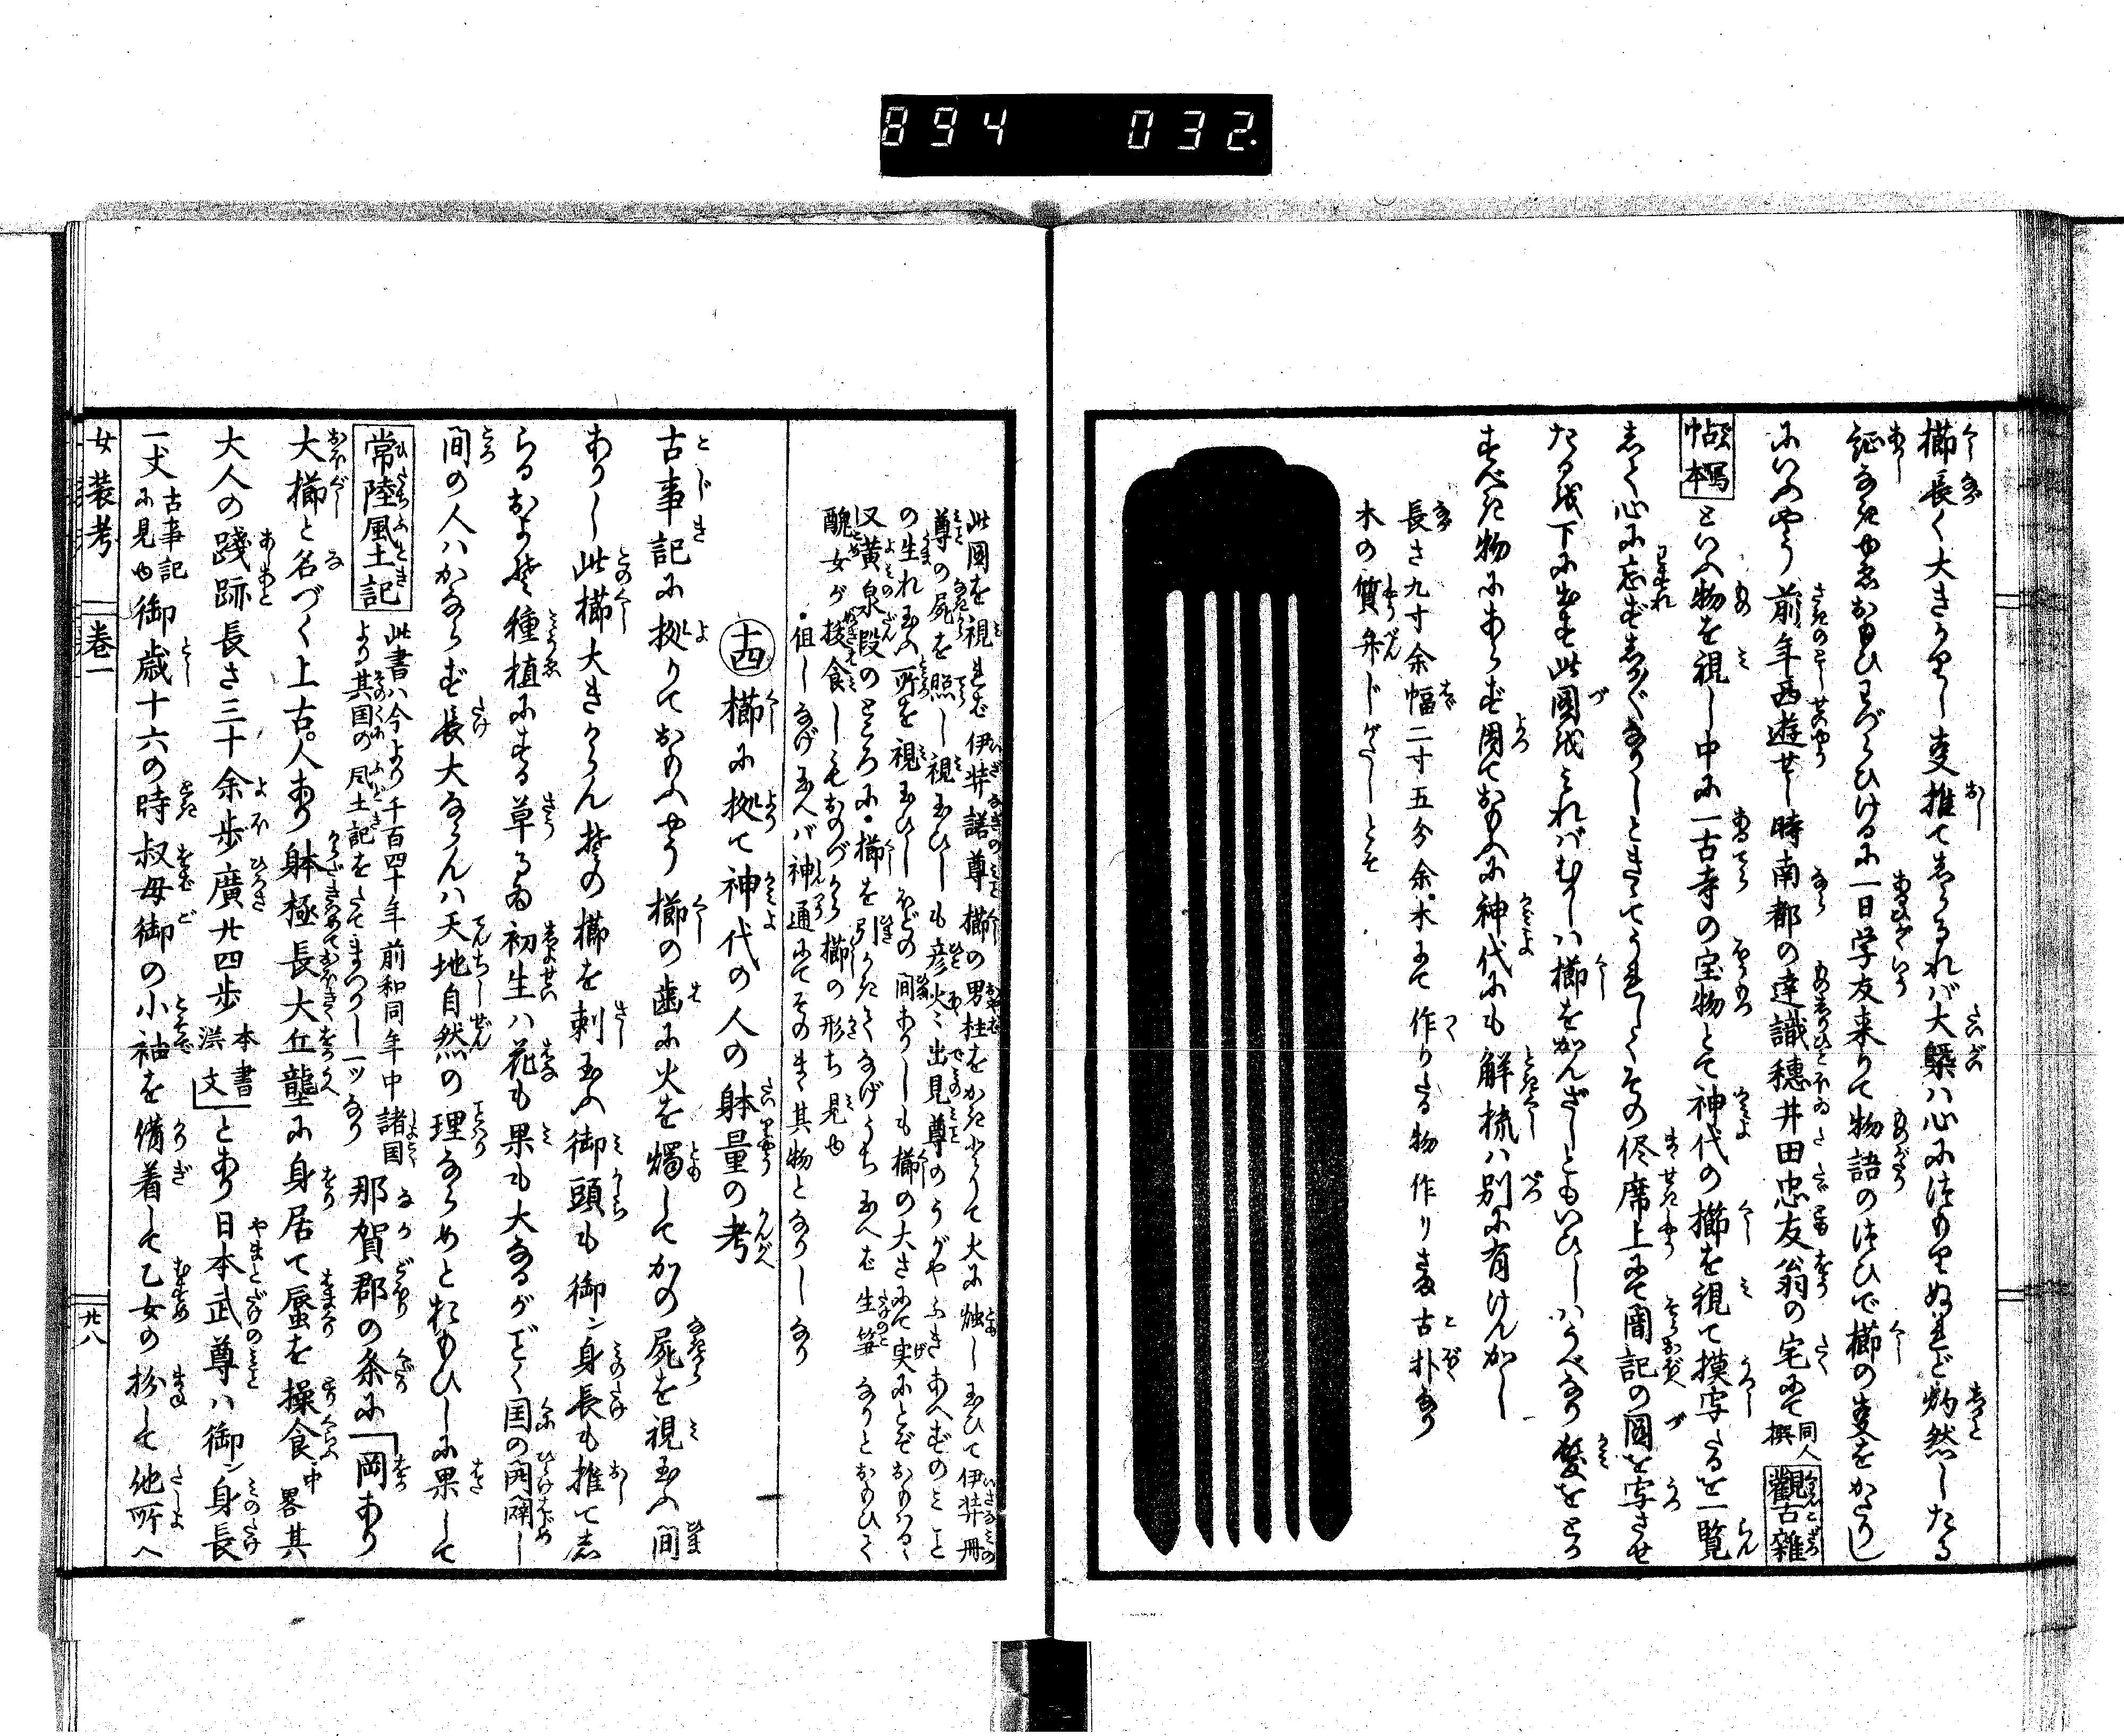 894 032.
櫛長く大きかりし事推てしらるれば大槩は心に得
証なきゆゑおもひわづらひけるに一日学友来りて物語のついで櫛の事をかたりし
にいふやう前年西遊せし時南都の達識穂井田忠友翁の宅にて同人撰觀古雜
帖写本といふ物を視し中に一古寺の宝物とて神代の櫛を視て摸写たるを一覧
して心に忘ず
たるを下に出す此図をみればむかしは櫛をかんざしともいひしはうべなり髪をとか
すべき物にあらず因ておもふに神代にも解梳は別に有けんかし
長さ九寸余幅二寸五分余木にて作りたる物作りざま古朴なり
木の質弁じがたしとぞ
此図を視れば伊弉諾尊櫛の男柱をかきとりて火に燭し玉ひて伊弉冊
尊の屍を照し視玉ひしも彦火々出見尊のうがやふきあへずのみこと
の生れ玉ふ所を視玉ひしほどの間ありしも櫛の大さにて実にとぞおもはるゝ
又黄泉段のところに櫛を引かきてなげうち玉へば生笋なりとおもひて
醜女が抜食しもおのづから櫛の形ち見ゆ
但しなげ玉へバ神通にてそのまゝ其物となりしなり
十四 櫛に拠て神代の人の躰量の考
古事記に拠りておもふやう櫛の歯に火を燭してかの屍を視玉ふ間
ありし此櫛大きからん其の櫛を刺玉ふ御頭も御ン身長も推てし
らるおよそ種植にする草るゐ初生ハ花も果も大なるがごとく国の開闢し
間の人ハかならず長大ならんハ天地自然の理ならめとおもひしに果して
常陸風土記 此書ハ今より千百四十年前和同年中諸国より其国の風土記をたてまつりし一ツなり 那賀郡の条に「岡あり
大櫛と名づく上古人あり躰極長大丘壟に身居て蜃を操食中畧其
大人の踐跡長さ三十余歩廣廿四歩本書漢文」とあり日本武尊ハ御ン身長
一丈古事記に見ゆ御歳十六の時叔母御の小袖を備着して乙女の扮して他所へ
女装考 卷一 廿八